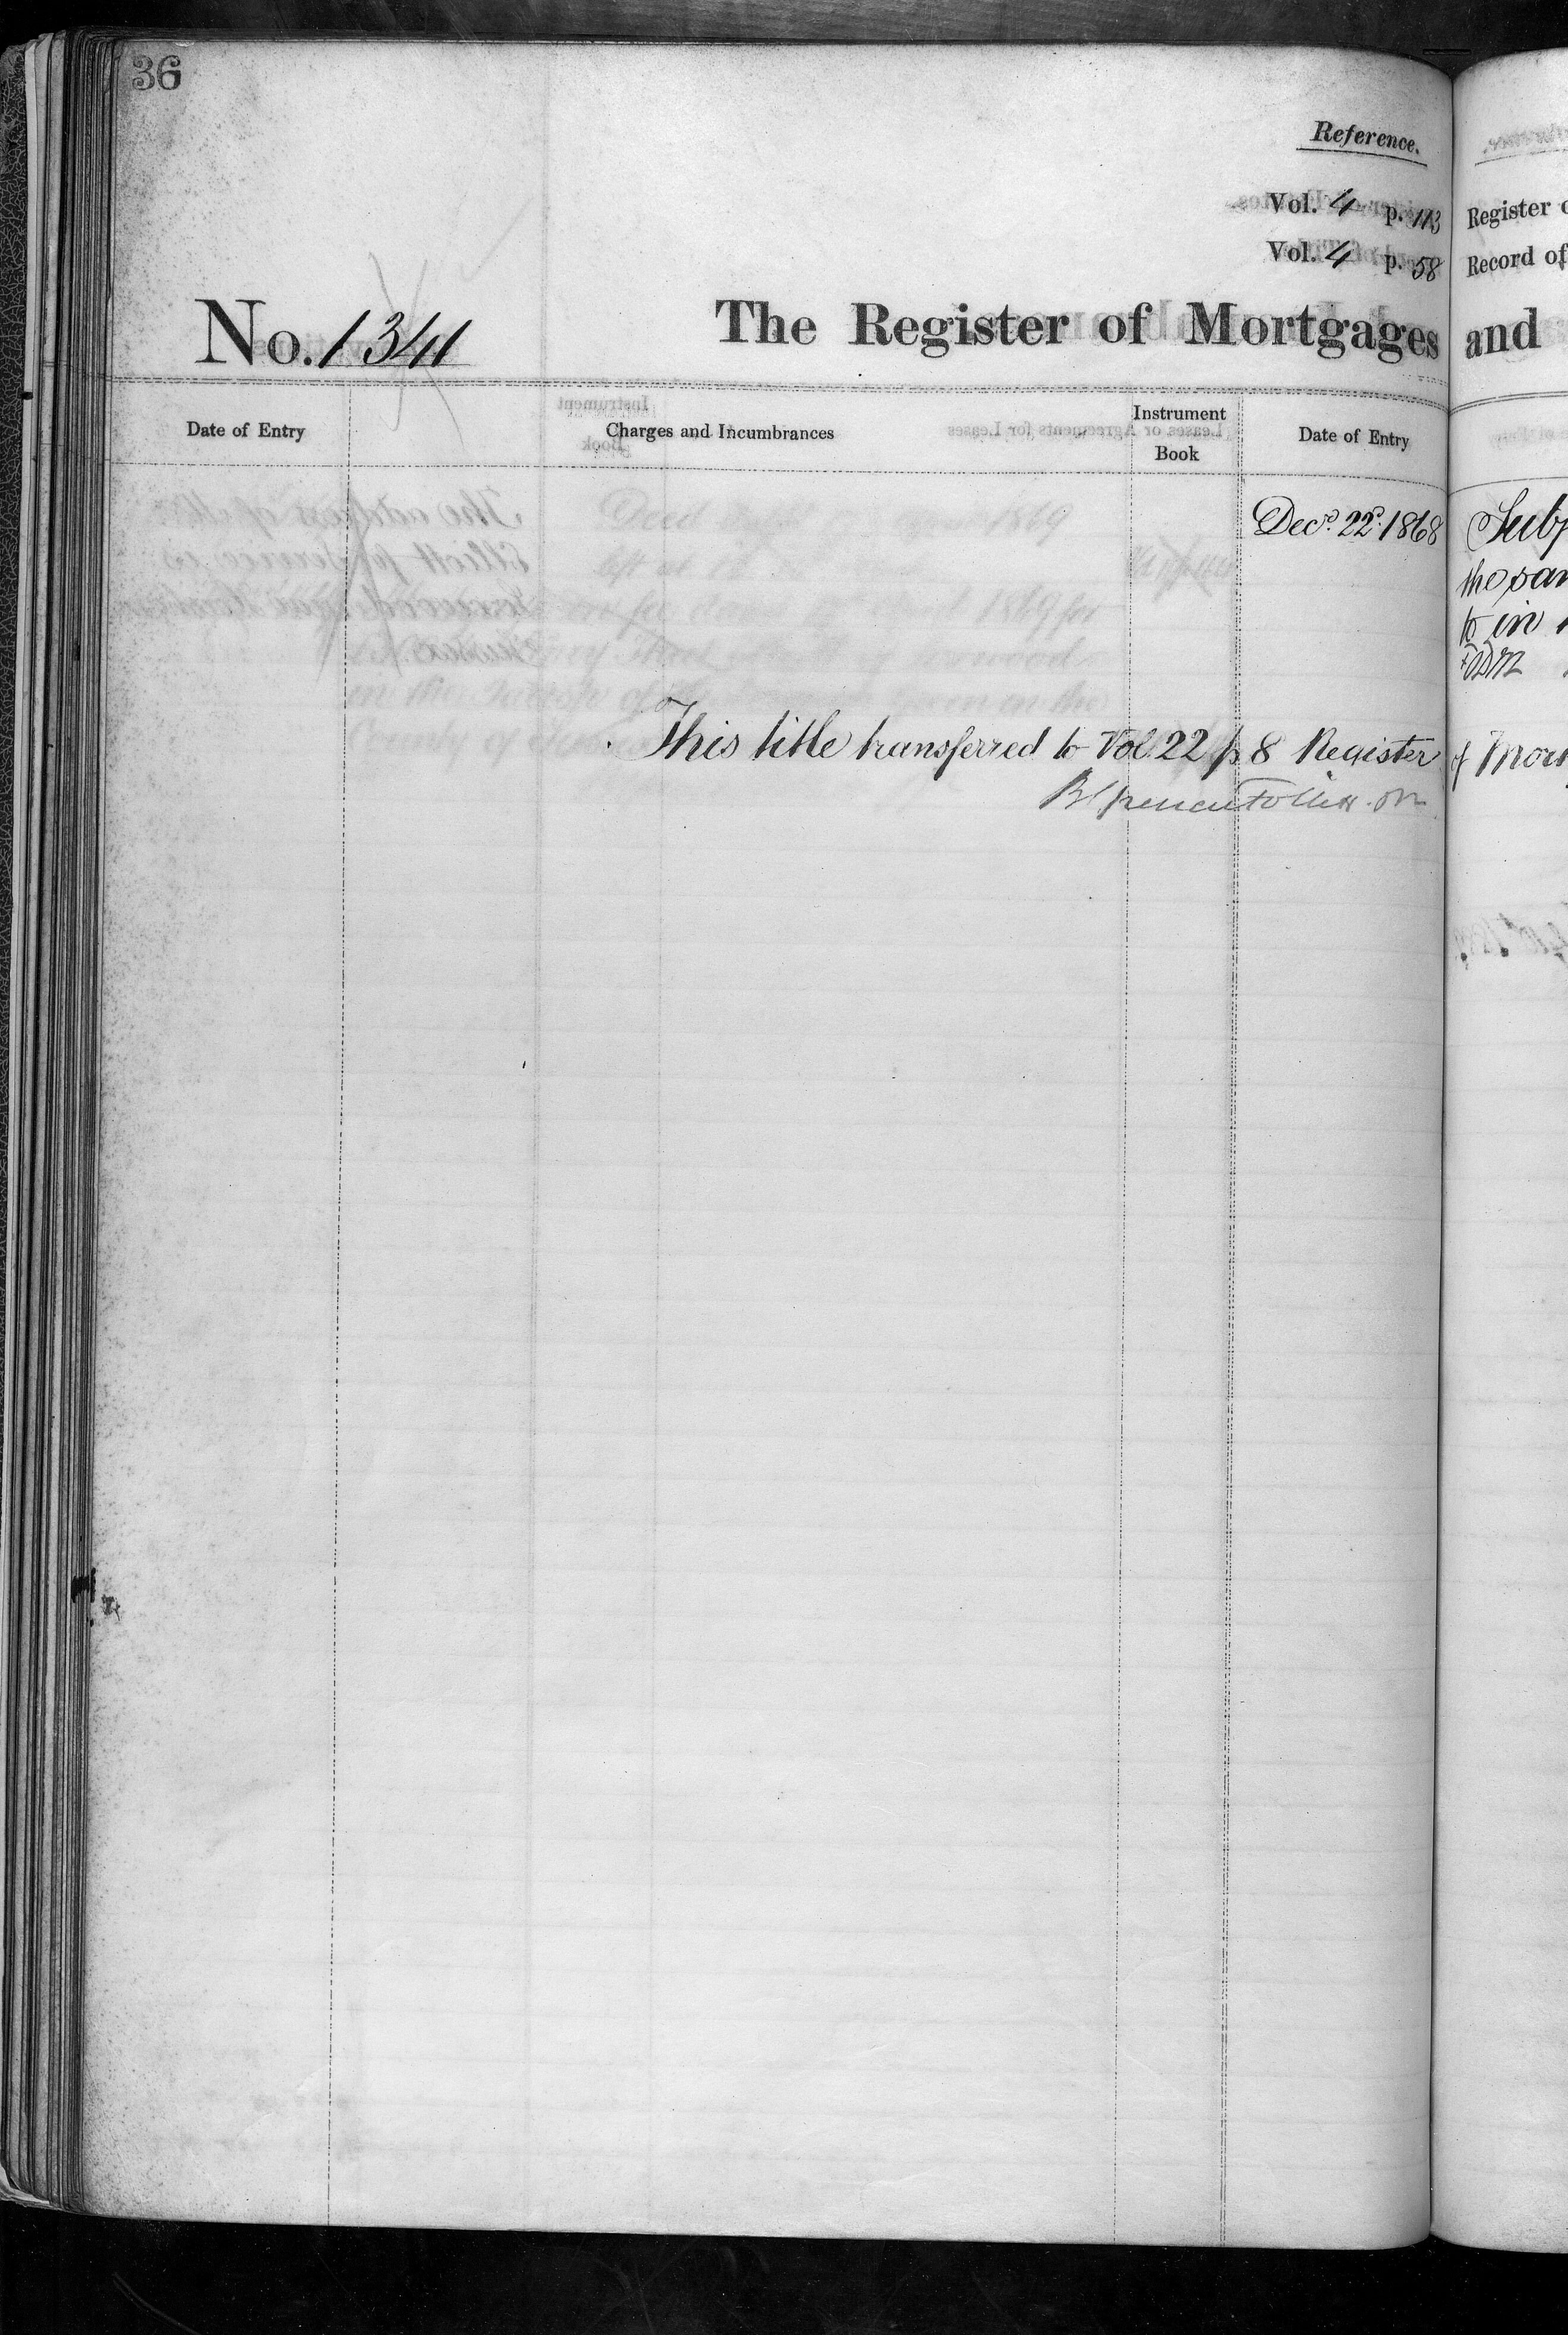 36
Reference.
Vol. 4 p. 113 Register
Vol. 4 p. 58 Record of
No. 1341 The Register of Mortgages and
Date of Entry Charges and Incumbrances Instrument Book Date of Entry
Decr. 22d. 1868 Subj
the sam
to in
This title transferred to Vol. 22 p. 8 Register of Mort